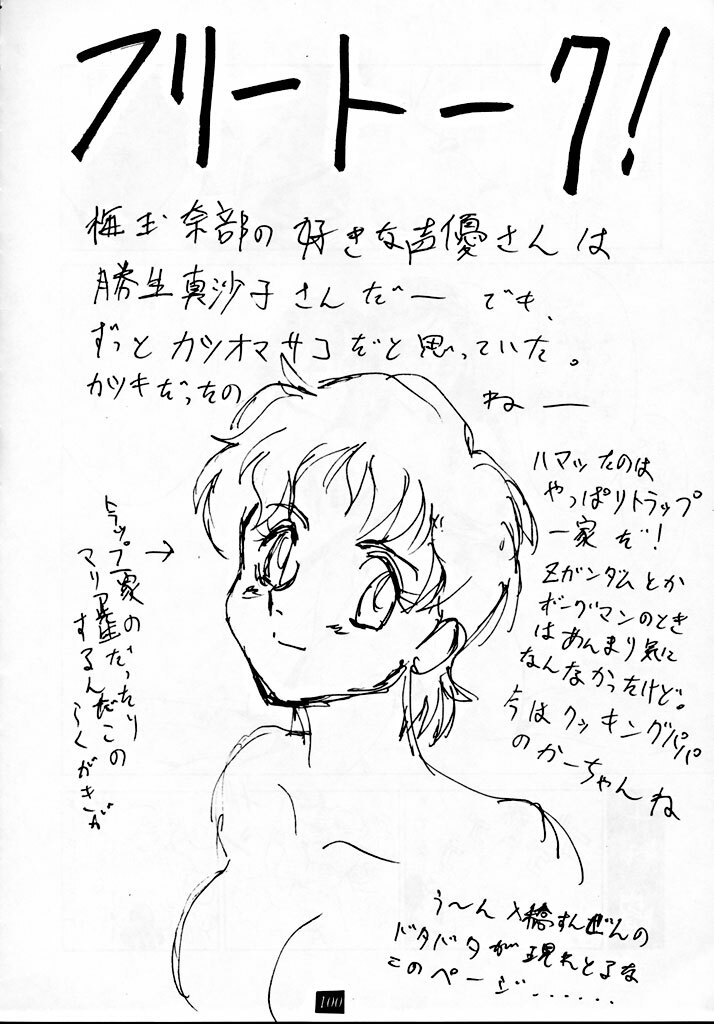 フリートーク!
梅玉奈部の好きな声優さんは
勝生真沙子さんだー でも、
ずっとカツオマサコだと思っていた。
カツキだったの
ねー
ハマッたのは
やっぱりトラップ
一家だ!
Zガンダムとか
ボーグマンのとき
はあんまり気に
なんなかったけど。
今はクッキングパパ
のかーちゃんね
トラップ一家の
マリア先生だったり
するんだこの
らくがきが
→
う〜ん 橋すんぜんの
ドタバタが現れとるな
このページ……
100